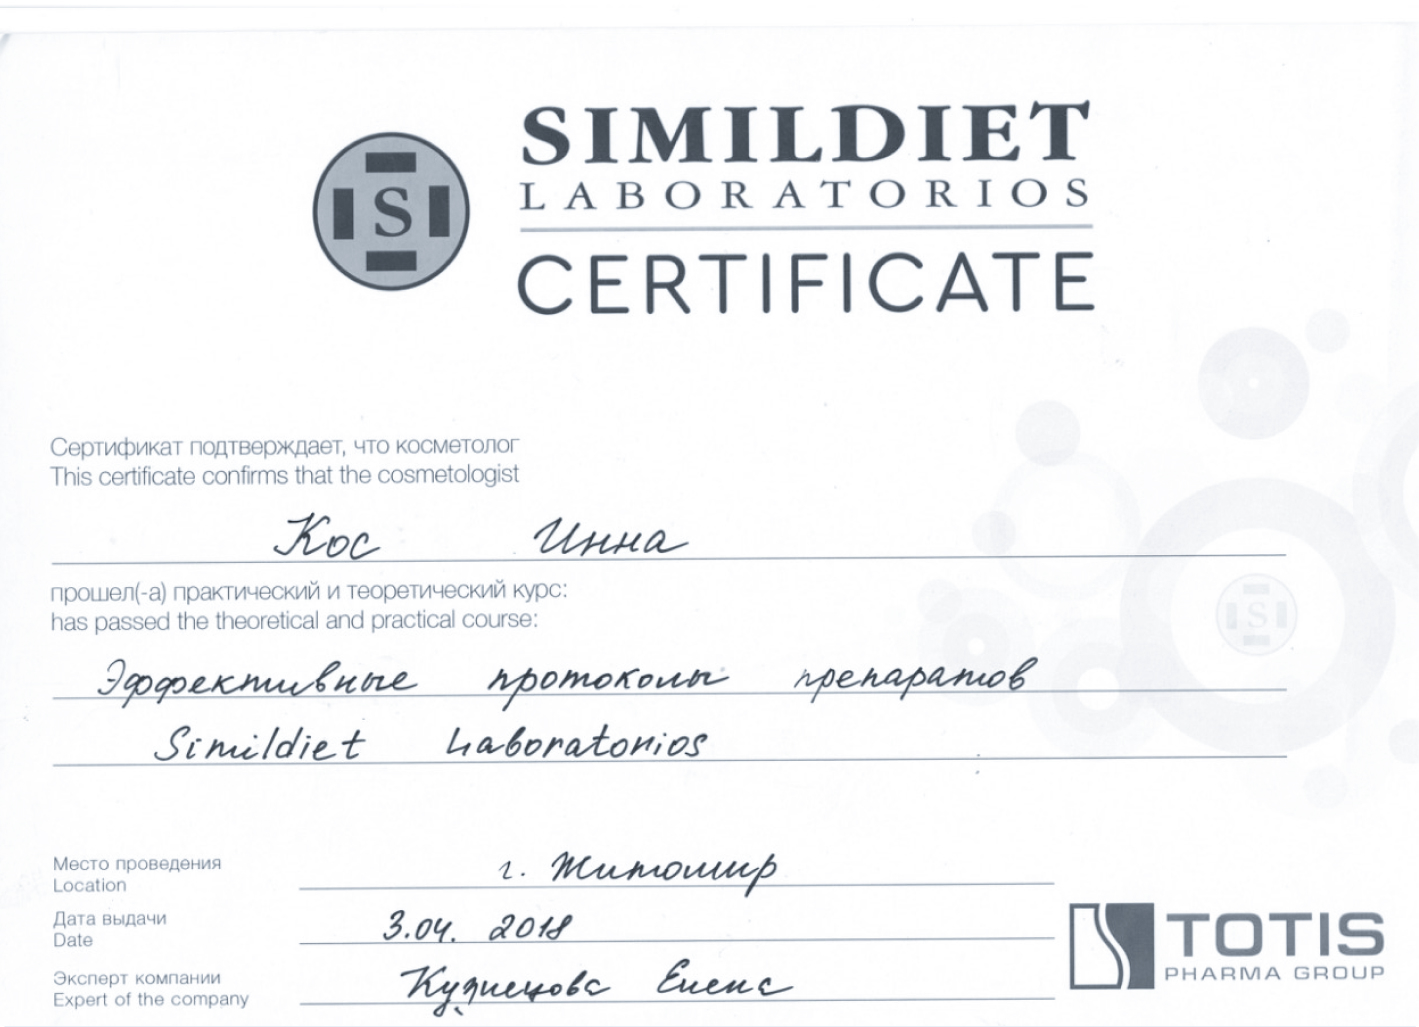 SIMILDIET
LABORATORIOS
CERTIFICATE
S
Сертификат подтверждает, что косметолог
This certificate confirms that the cosmetologist
Кос Инна
прошел(-а) практический и теоретический курс:
has passed the theoretical and practical course:
Эффективные протоколы препаратов
Simildiet Laboratorios
S
Место проведения
Location
г. Житомир
Дата выдачи
Date
3.04. 2018
Эксперт компании
Expert of the company
Кузнецова Елена
TOTIS
PHARMA GROUP